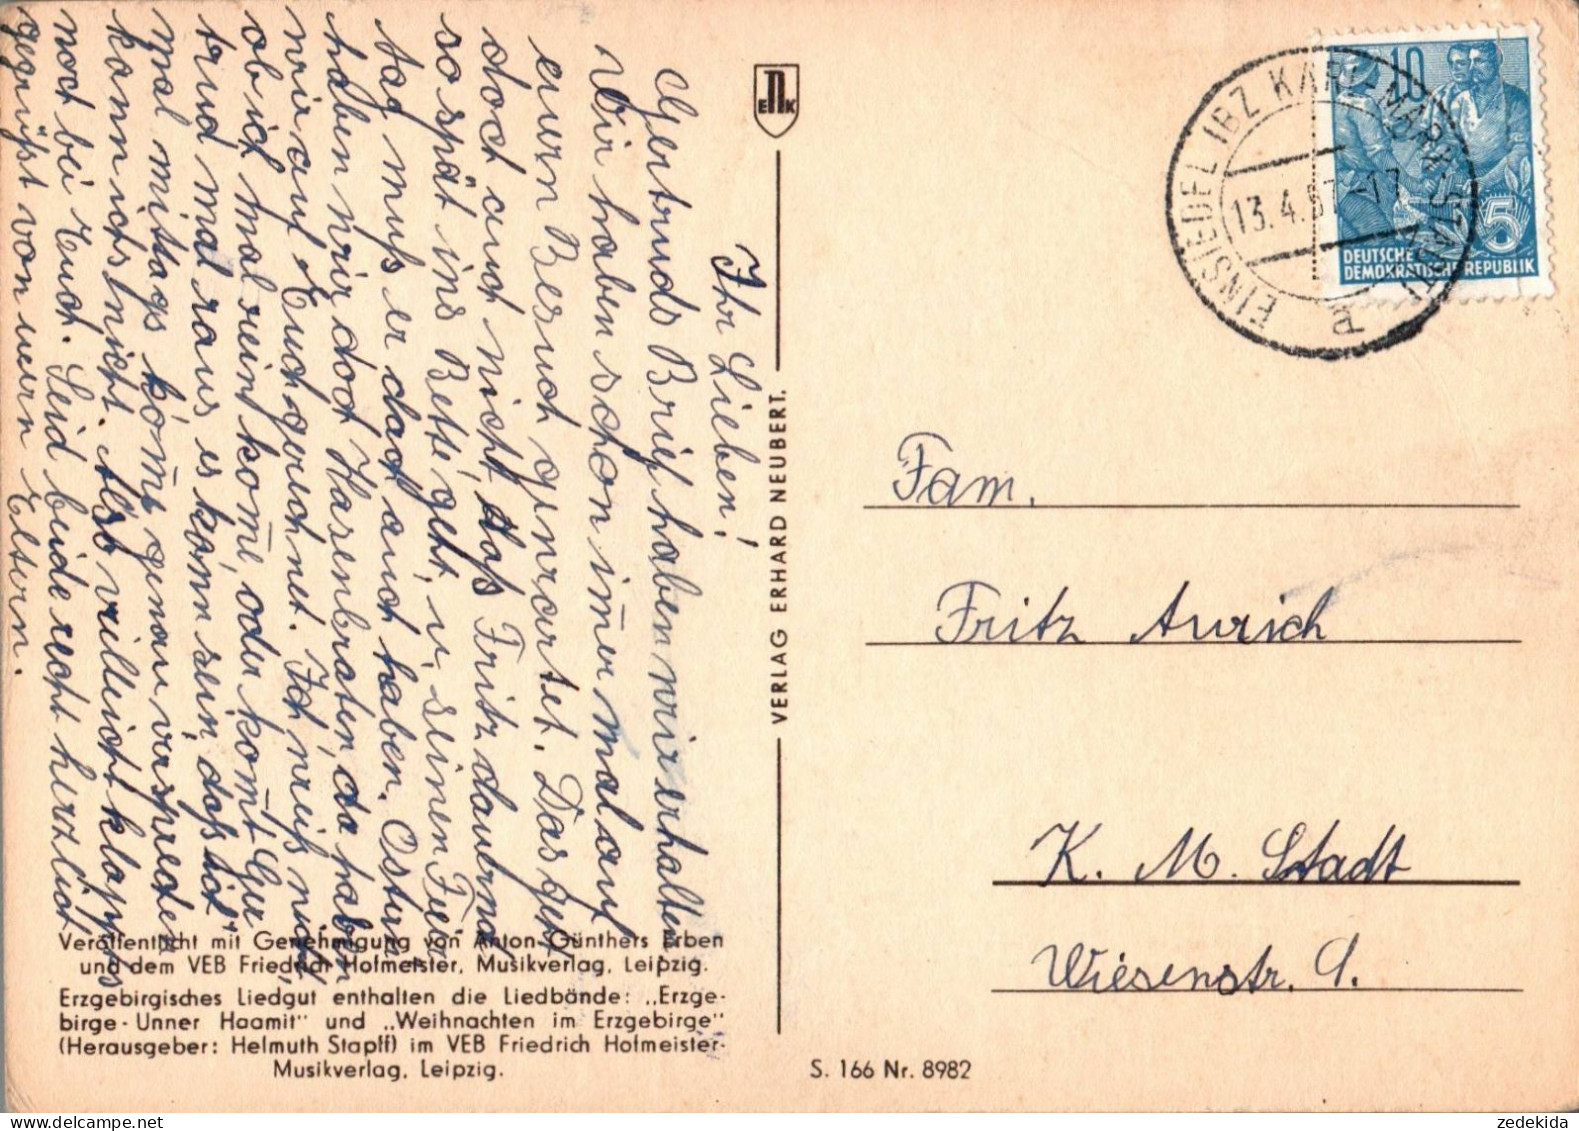 Ihr Lieben!
Gertruds Brief haben wir erhalten
Wir haben schon im̄er mal auf
euern Besuch gewartet. Das geht
doch auch nicht, daß Fritz dauernd
so spät ins Bette geht, u. seinen Feier
tag muß er doch auch haben. Ostern
haben wir doch Hasenbraten, da haben
wir auf Euch gerechnet. Ich weiß nicht,
ob ich mal rein kom̄e, oder kom̄t Ger
trud mal raus, es kann sein, daß ich
mal mittags kom̄e genau versprechen
kann ichs nicht. Also vielleicht klappts
noch bei Euch. Seid beide recht herzlich
gegrüßt von euern Eltern.
Veröffentlicht mit Genehmigung von Anton-Günthers Erben
und dem VEB Friedrich Hofmeister, Musikverlag, Leipzig.
Erzgebirgisches Liedgut enthalten die Liedbände: „Erzge-
birge - Unner Haamit" und „Weihnachten im Erzgebirge"
(Herausgeber: Helmuth Stapff) im VEB Friedrich Hofmeister-
Musikverlag, Leipzig.
ENK
VERLAG ERHARD NEUBERT.
S. 166 Nr. 8982
EINSIEDEL ÜBZ KARL-MARX-STADT
13.4.57.-17
10
5
DEUTSCHE
DEMOKRATISCHE REPUBLIK
Fam.
Fritz Aurich
K. M. Stadt
Wiesenstr. 9.
zedekida